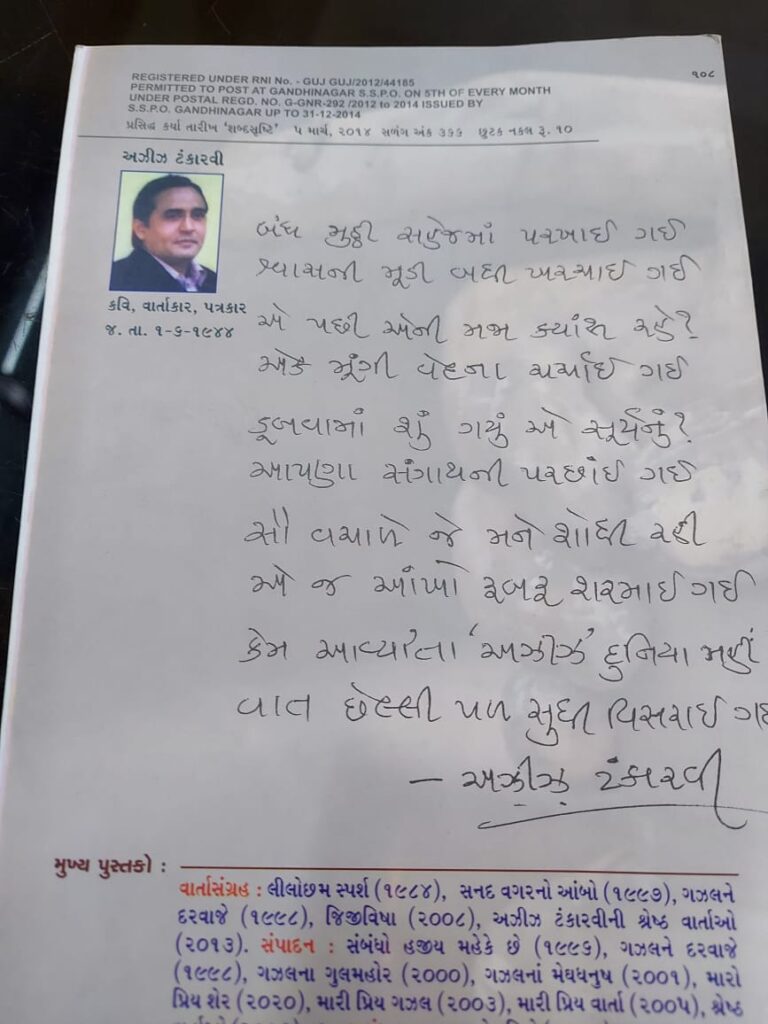 ૧૦૮
REGISTERED UNDER RNI No. - GUJ GUJ/2012/44185
PERMITTED TO POST AT GANDHINAGAR S.S.P.O. ON 5TH OF EVERY MONTH
UNDER POSTAL REGD. NO. G-GNR-292 /2012 to 2014 ISSUED BY
S.S.P.O. GANDHINAGAR UP TO 31-12-2014
પ્રસિદ્ધ કર્યા તારીખ ‘શબ્દસૃષ્ટિ’ ૫ માર્ચ, ૨૦૧૪ સળંગ અંક ૩૬૬ છુટક નકલ રૂ. ૧૦
અઝીઝ ટંકારવી
કવિ, વાર્તાકાર, પત્રકાર
જ. તા. ૧-૬-૧૯૪૪
બંધ મુઠ્ઠી સહેજમાં પરખાઈ ગઈ
શ્વાસની મૂડી બધી ખરચાઈ ગઈ
એ પછી એની મજા ક્યાંથી રહે?
એક મૂંગી વેદના ચર્ચાઈ ગઈ
ડૂબવામાં શું ગયું એ સૂર્યનું?
આપણા સંગાથની પરછાંઈ ગઈ
સૌ વચાળે જે મને શોધી રહી
એ જ આંખો રૂબરૂ શરમાઈ ગઈ
કેમ આવ્યા'તા ‘અઝીઝ’ દુનિયા મહીં
વાત છેલ્લી પળ સુધી વિસરાઈ ગઈ
– અઝીઝ ટંકારવી
મુખ્ય પુસ્તકો :
વાર્તાસંગ્રહ : લીલોછમ સ્પર્શ (૧૯૮૪), સનદ વગરનો આંબો (૧૯૯૭), ગઝલને
દરવાજે (૧૯૯૮), જિજીવિષા (૨૦૦૮), અઝીઝ ટંકારવીની શ્રેષ્ઠ વાર્તાઓ
(૨૦૧૩). સંપાદન : સંબંધો હજીય મહેકે છે (૧૯૯૬), ગઝલને દરવાજે
(૧૯૯૮), ગઝલના ગુલમહોર (૨૦૦૦), ગઝલનાં મેઘધનુષ (૨૦૦૧), મારો
પ્રિય શેર (૨૦૨૦), મારી પ્રિય ગઝલ (૨૦૦૩), મારી પ્રિય વાર્તા (૨૦૦૫), શ્રેષ્ઠ